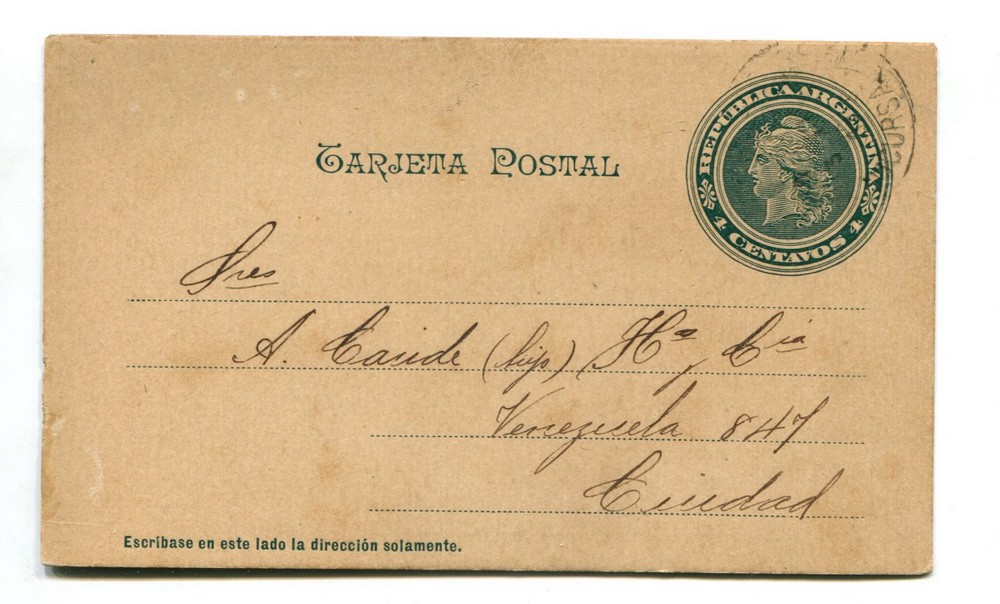 TARJETA POSTAL
REPUBLICA ARGENTINA
4 CENTAVOS 4
Sres
A. Caride (hijo) Hº y Cia
Venezuela 847
Ciudad
Escríbase en este lado la dirección solamente.